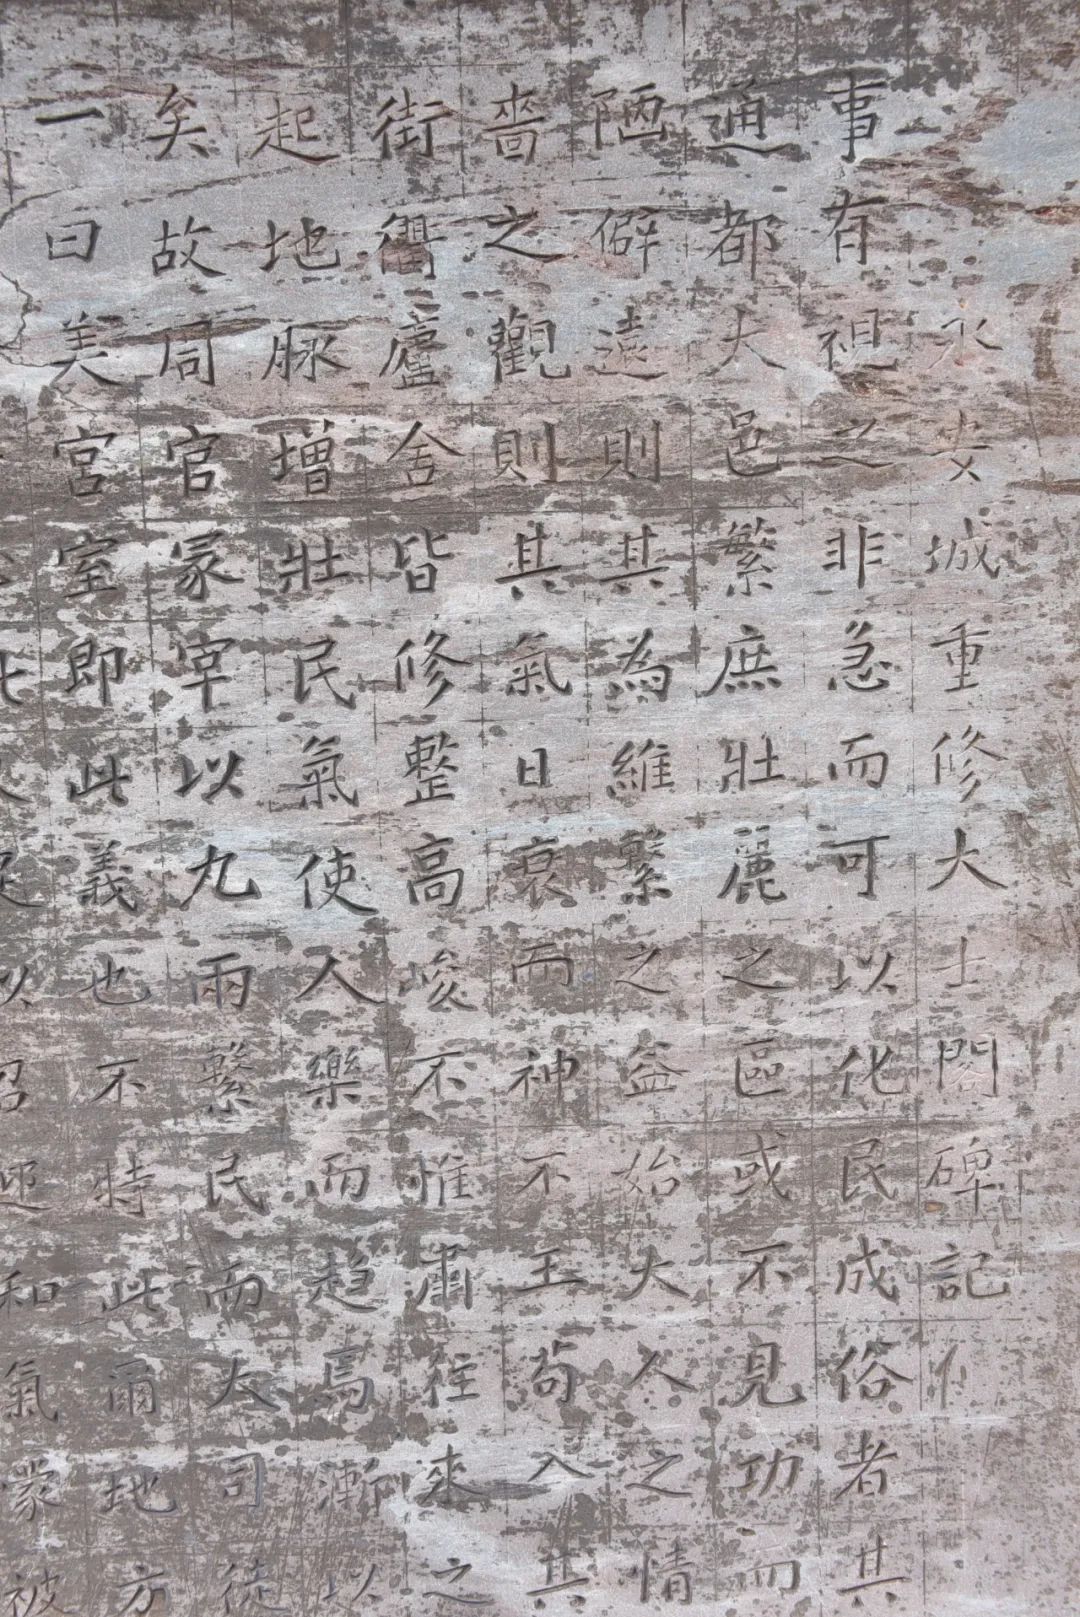 永安城重修大士閣碑記
事有視之非急而可以化民成俗者其
通都大邑繁庶壯麗之區或不見功而
陋僻遠則其為維繫之益始大人之情
嗇之觀則其氣日衰而神不王苟入其
街衢廬舍皆修整高峻不惟肅往來之
起地脉增壯民氣使人樂而趨焉漸以
矣故周官冢宰以九兩繫民而大司徒
一曰美宮室即此義也不特此爾地方
以迎和氣蒙被